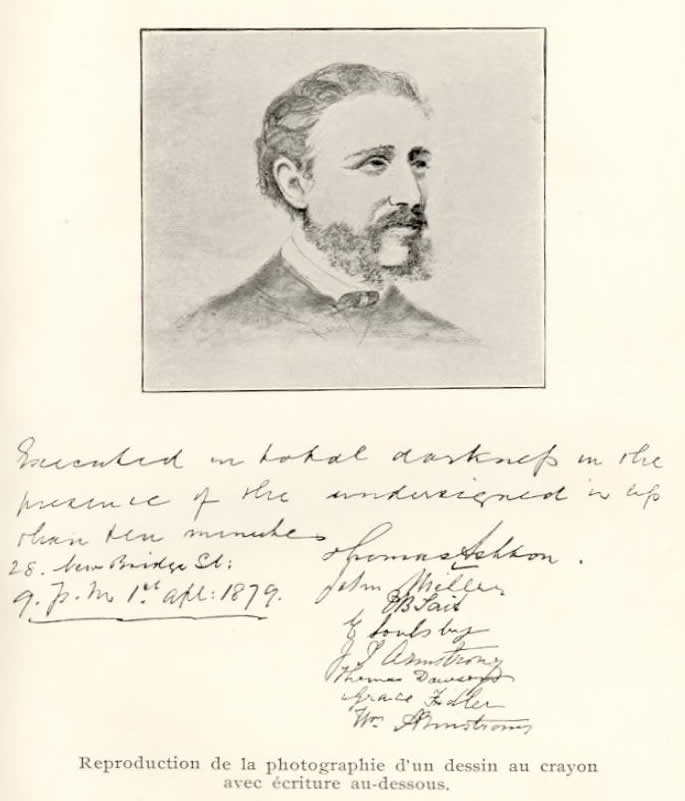 Executed in total darkness in the
presence of the undersigned in less
than ten minutes
28. New Bridge St:
9. p.m 1st apl: 1879.
Thomas Ashton.
John Miller
E Soulsby
J T Armstrong
Thomas Dawson
Grace Fidler
Wm Armstrong
Reproduction de la photographie d'un dessin au crayon
avec écriture au-dessous.